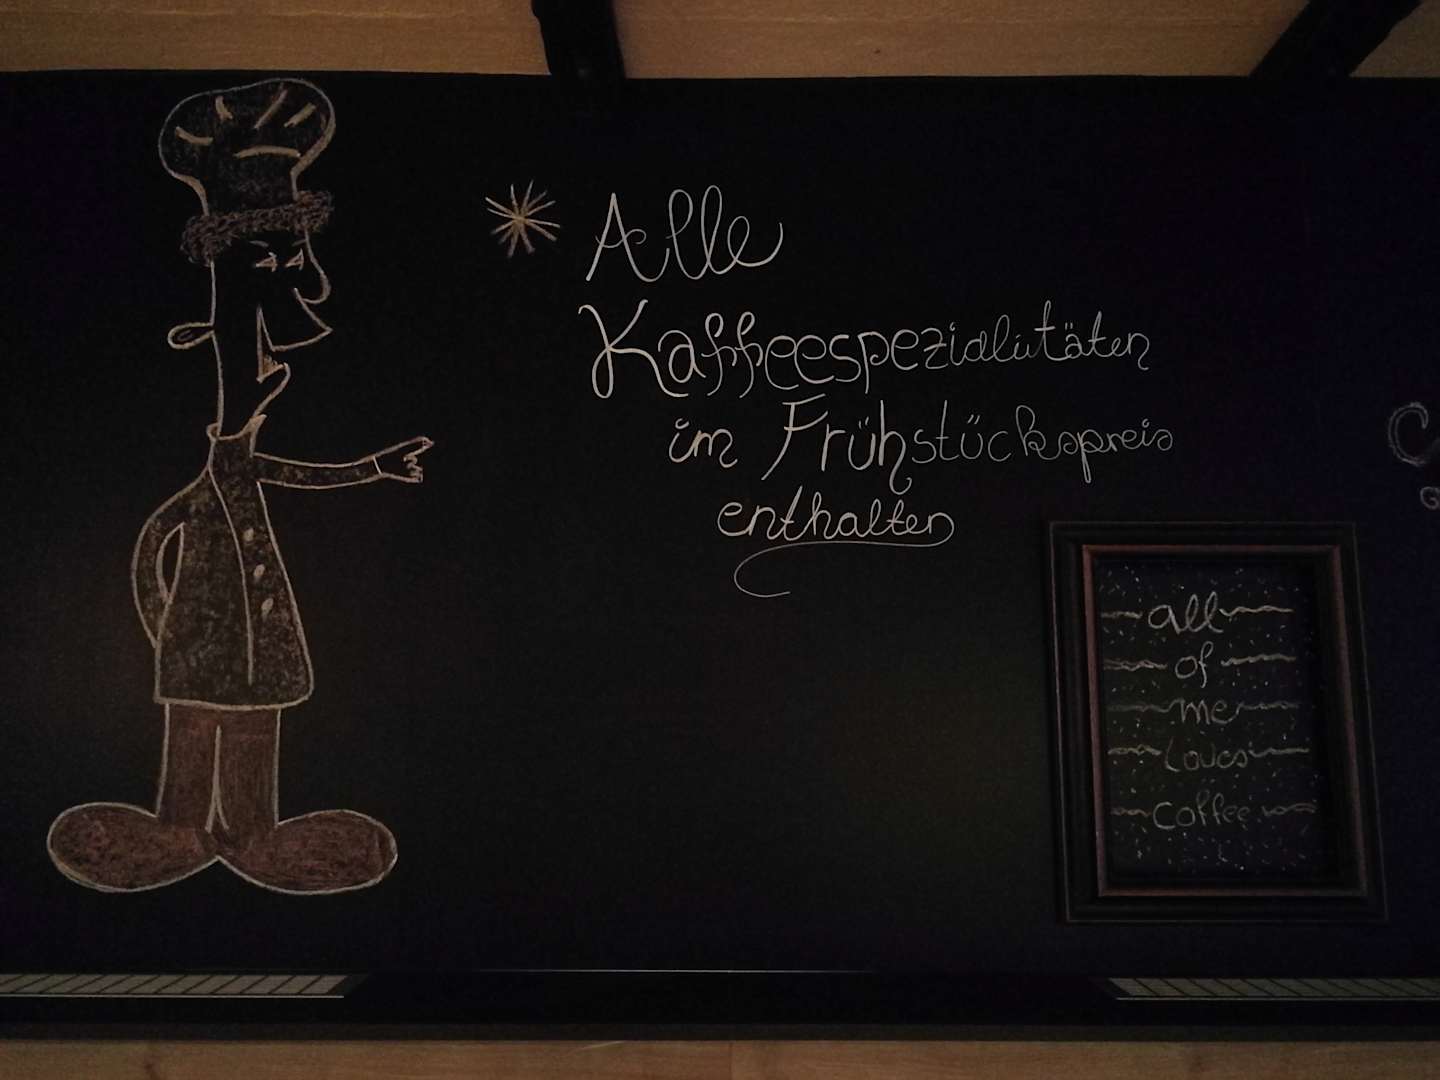 * Alle
Kaffeespezialitäten
im Frühstückspreis
enthalten
all
of
me
loves
coffee